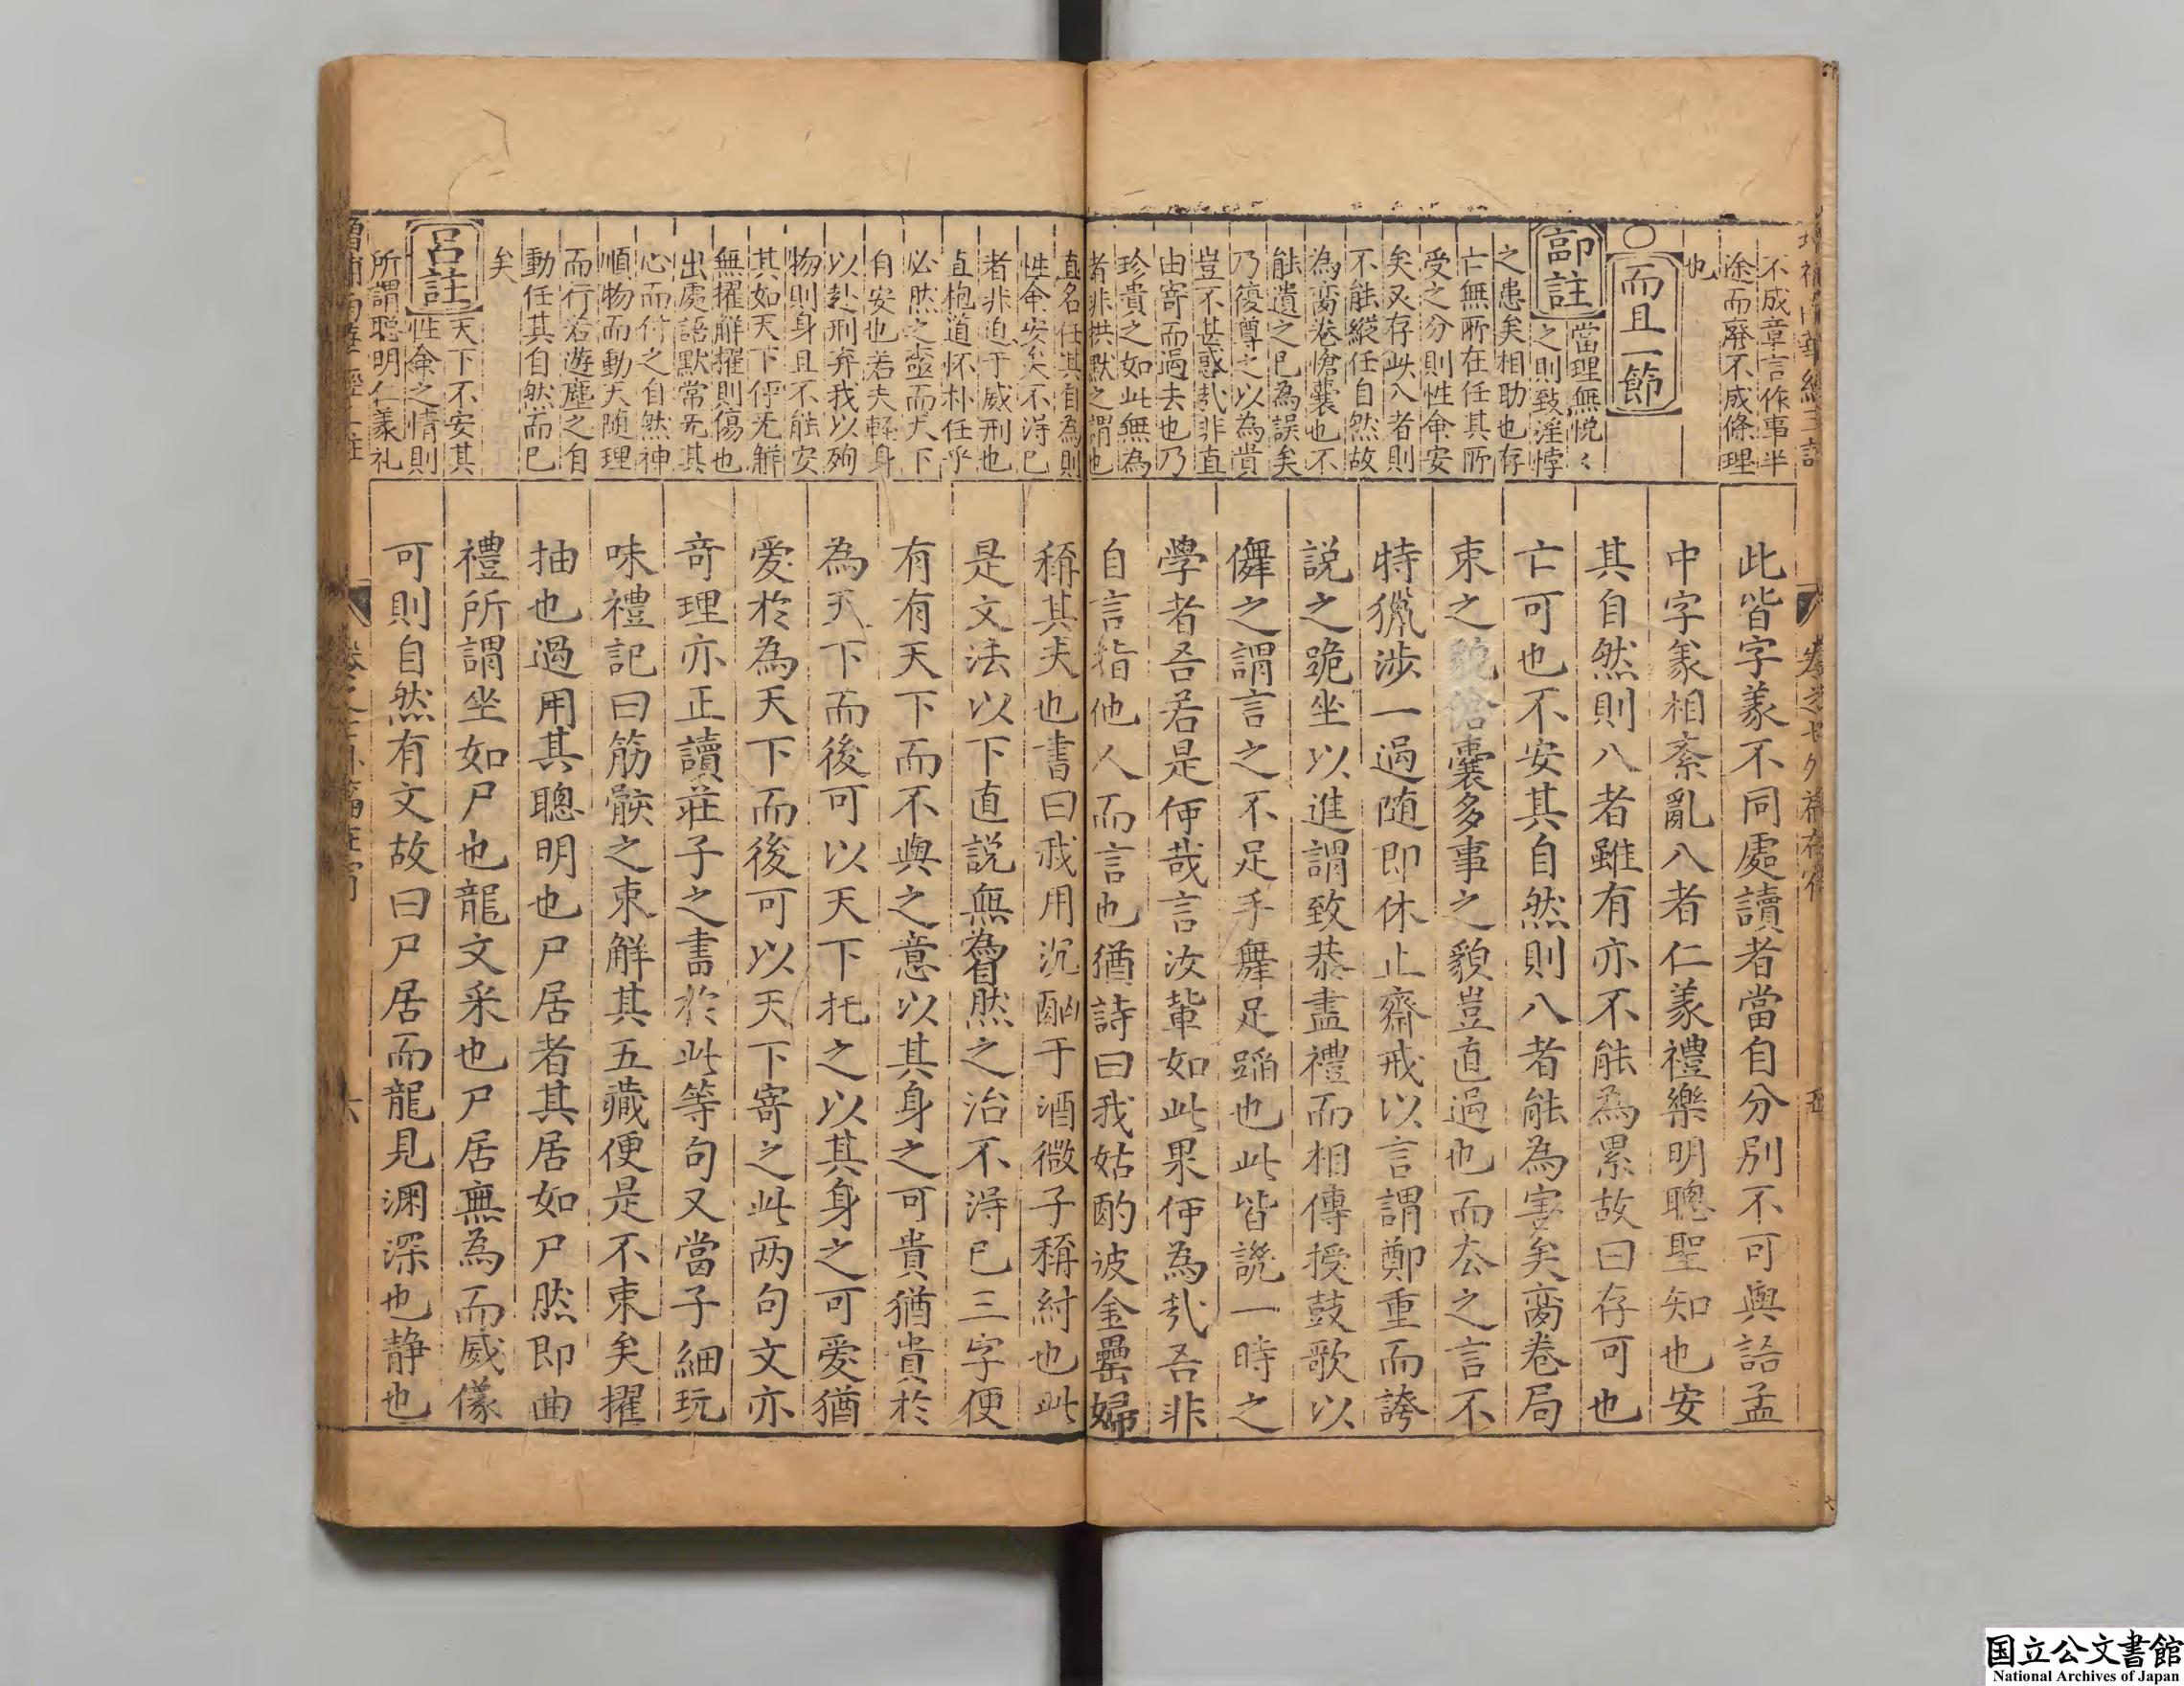 不成章言作事半
途而廢不成條理
也
○而且一節
郭註
當理無悅〻
之則致淫悖
之患矣相助也存
亡無所在任其所
受之分則性命安
矣又存此八者則
不能縱任自然故
為臠卷愴囊也不
能遺之已為誤矣
乃復尊之以為貴
豈不甚惑哉非直
由寄而過去也乃
珍貴之如此無為
者非拱默之謂也
此皆字義不同處讀者當自分別不可與語孟
中字義相紊亂八者仁義禮樂明聰聖知也安
其自然則八者雖有亦不能為累故曰存可也
亡可也不安其自然則八者能為害矣臠卷局
束之貌愴囊多事之貌豈直過也而去之言不
特獵涉一過随即休止齋戒以言謂鄭重而誇
説之跪坐以進謂致恭盡禮而相傳授鼓歌以
儛之謂言之不足手舞足蹈也此皆譏一時之
學者吾若是何哉言汝輩如此果何為哉吾非
自言指他人而言也猶詩曰我姑酌彼金罍婦
直名任其自為則
性命安矣不淂已
者非迫于威刑也
直抱道怀朴任乎
必然之極而天下
自安也若夫輕身
以赴刑弃我以殉
物則身且不能安
其如天下何无解
無擢解擢則傷也
出處語默常无其
心而付之自然神
順物而動天随理
而行若遊塵之自
動任其自然而已
矣
呂註
天下不安其
性命之情則
所謂聰明仁義礼
稱其夫也書曰我用沉酗于酒微子稱紂也此
是文法以下直説無為自然之治不淂已三字便
有有天下而不與之意以其身之可貴猶貴於
為天下而後可以天下托之以其身之可愛猶
愛於為天下而後可以天下寄之此两句文亦
竒理亦正讀莊子之書於此等句又當子細玩
味禮記曰筋骸之束解其五藏便是不束矣擢
抽也過用其聰明也尸居者其居如尸然即曲
禮所謂坐如尸也龍文采也尸居無為而威儀
可則自然有文故曰尸居而龍見淵深也静也
六
国立公文書館
National Archives of Japan